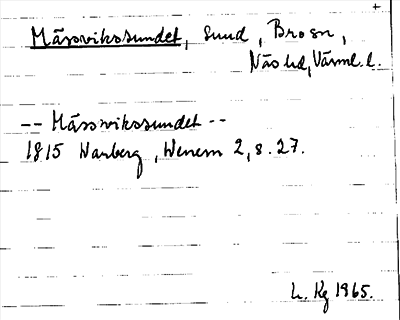 Mässvikssundet, sund, Bro sn,
Näs hd, Värml. l.
-- Mässvikssundet --
1815 Warberg, Wenern 2, s. 27.
L. Kg 1965.